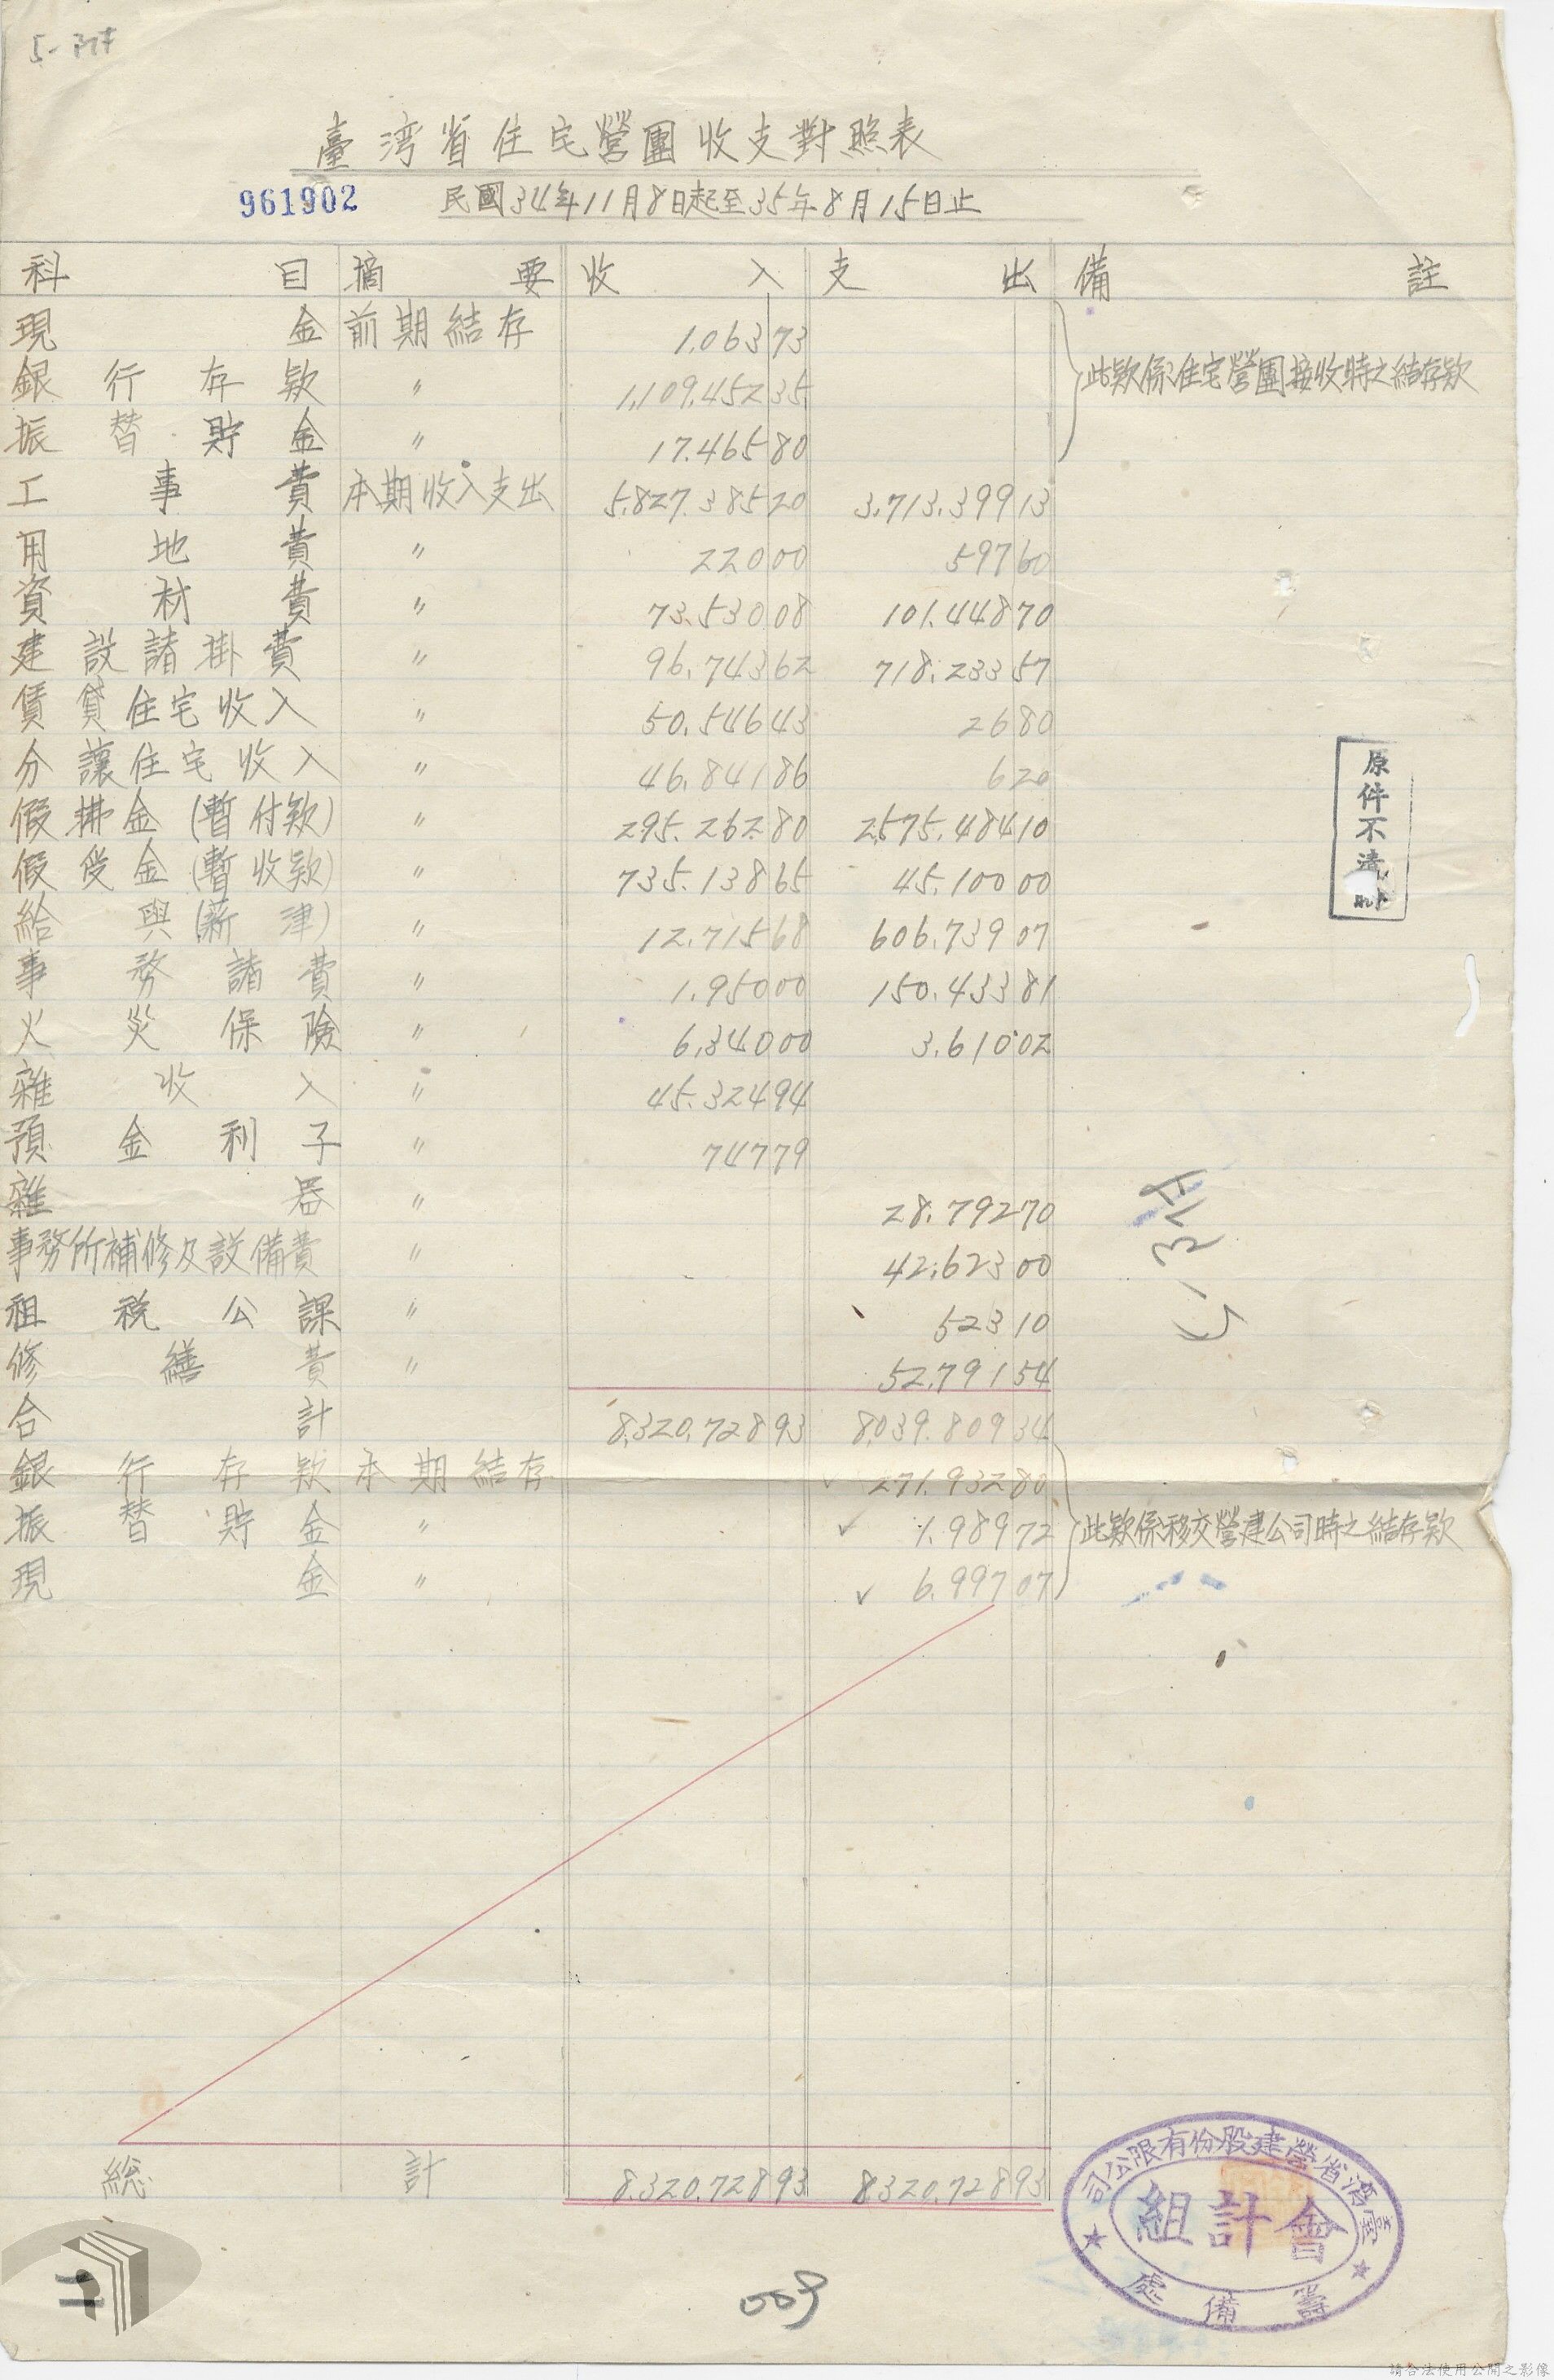 5-附
臺湾省住宅營團收支對照表
961902 民國34年11月8日起至35年8月15日止
科目 摘要 收入 支出 備註
現金 前期結存 1,063 73
銀行存款 〃 1,109,452 35 此款係住宅營團接收時之結存款
振替貯金 〃 17,465 80
工事費 本期收入支出 5,827,385 20 3,713,399 13
用地費 〃 220 00 597 60
資材費 〃 73,530 08 101,448 70
建設諸掛費 〃 96,743 62 718,233 57
賃貸住宅收入 〃 50,546 43 26 80
分讓住宅收入 〃 46,841 86 6 20
假拂金(暫付款) 〃 295,262 80 2,575,484 10
假受金(暫收款) 〃 735,138 65 45,100 00
給與(薪津) 〃 12,715 68 606,739 07
事務諸費 〃 1,950 00 150,433 81
火災保險 〃 6,340 00 3,610 02
雜收入 〃 45,324 94
預金利子 〃 747 79
雜器 〃 28,792 70
事務所補修及設備費 〃 42,623 00
租稅公課 〃 523 10
修繕費 〃 52,791 54
合計 8,320,728 93 8,039,809 34
銀行存款 本期結存 271,932 80
振替貯金 〃 1,989 72 此款係移交營建公司時之結存款
現金 〃 6,997 07
総計 8,320,728 93 8,320,728 93
原件不清
5-附
臺灣省營建股份有限公司
會計組
籌備處
009
請合法使用公開之影像